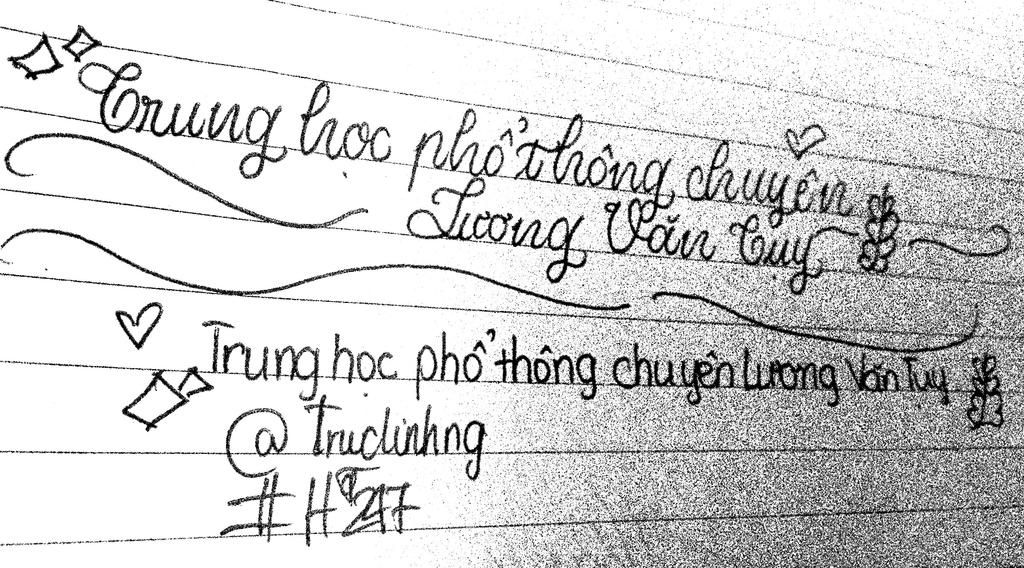 Trung học phổ thông chuyên
Lương Văn Tụy
Trung học phổ thông chuyên Lương Văn Tụy
@ Truclinhng